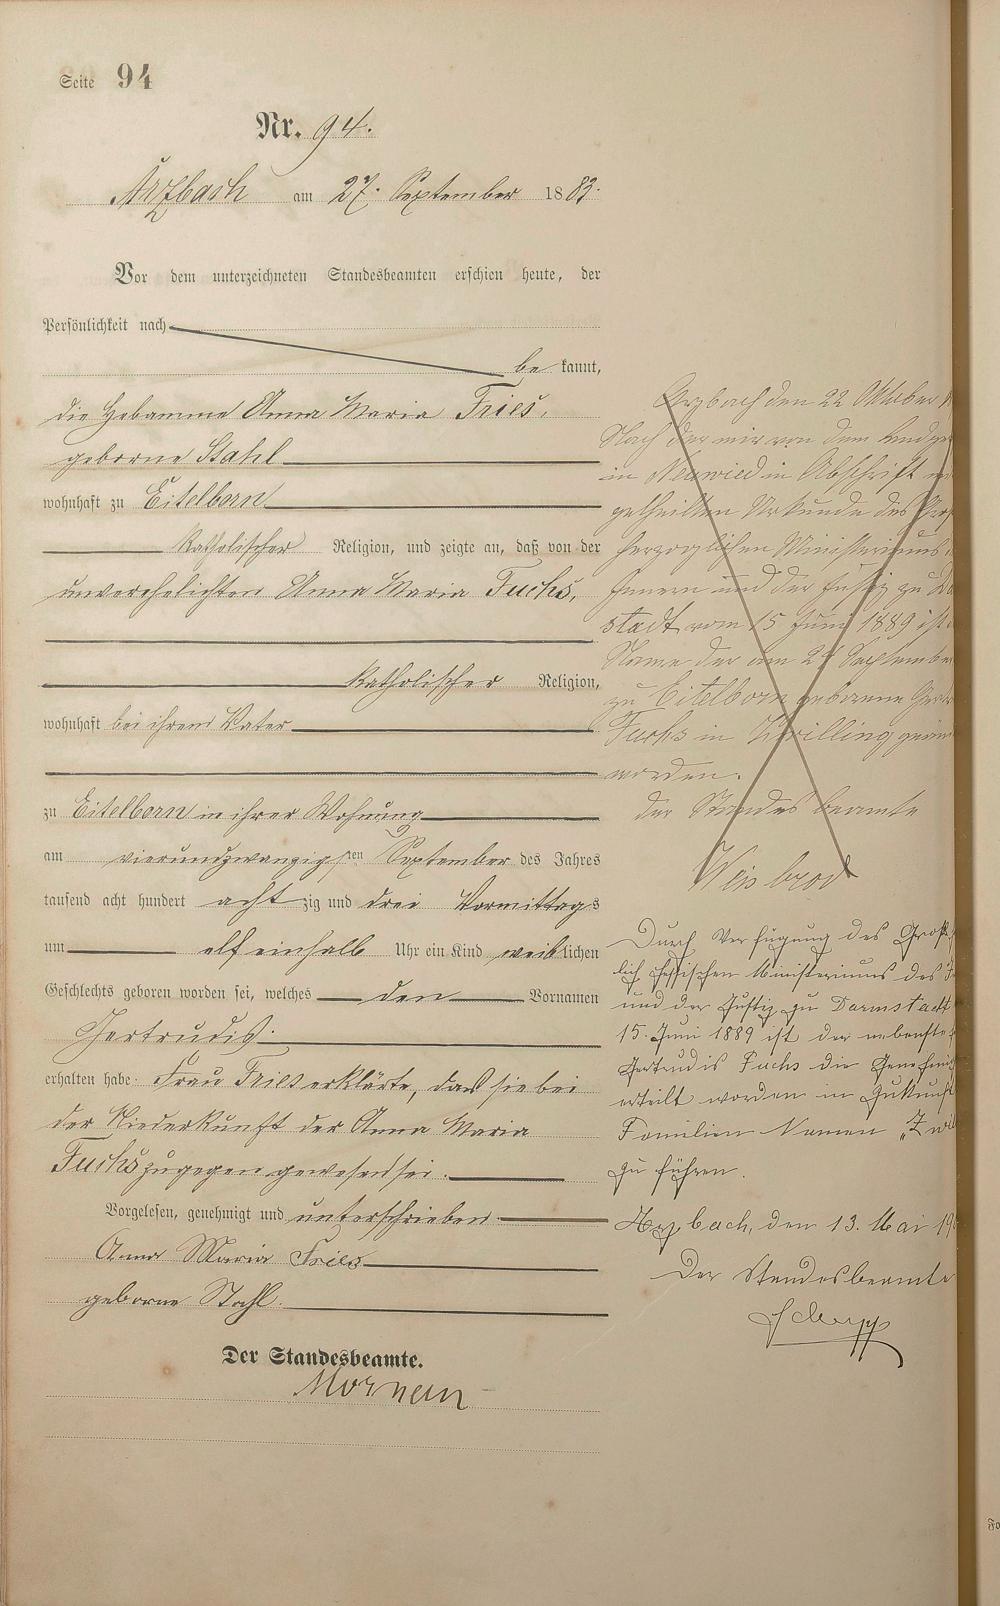 Seite 94
Nr. 94.
Arzbach am 27. September 1883.
Vor dem unterzeichneten Standesbeamten erschien heute, der
Persönlichkeit nach
be kannt,
die Hebamme Anna Maria Fries,
geborne Stahl
wohnhaft zu Eitelborn
katholischer Religion, und zeigte an, daß von der
unverehelichten Anna Maria Fuchs,
katholischer Religion,
wohnhaft bei ihrem Vater
zu Eitelborn in ihrer Wohnung
am vierundzwanzigsten September des Jahres
tausend acht hundert acht zig und drei Vormittags
um elf einhalb Uhr ein Kind weiblichen
Geschlechts geboren worden sei, welches den Vornamen
Gertrudis.
erhalten habe. Frau Fries erklärte, dass sie bei
der Niederkunft der Anna Maria
Fuchs zugegen gewesen sei.
Vorgelesen, genehmigt und unterschrieben.
Anna Maria Fries
geborne Stahl.
Der Standesbeamte.
Arzbach den 22 Oktober
Nach der mir von dem
in Neuwied in Abschrift
getheilten Urkunde des
herzoglichen Ministeriums
Innern und der Justiz zu
stadt vom 15 Juni 1889 ist
Name der am 24 September
zu Eitelborn geborene
Fuchs in Zwilling
worden.
der Standesbeamte
Weisbrod
Durch Verfügung des Groß
lich hessischen Ministeriums des
und der Justiz zu Darmstadt
15. Juni 1889 ist der nebenste
Gertrudis Fuchs die Genehmi
erteilt worden in Zukunft
Familien Namen „Zwil
zu führen.
Arzbach, den 13. Mai 19
Der Standesbeamte